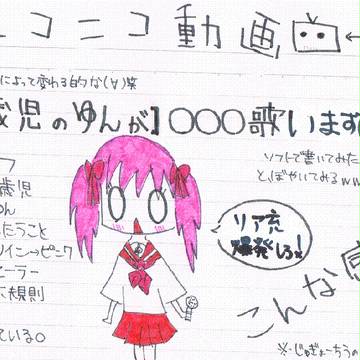 ニコニコ動画
によって変わる的な(∀)笑
歳児のゆんが】〇〇〇歌います
ソフトで書いてみた
とぼやいてみるww
フ
歳児
ゆん
うたうこと
ライン→ピーク
ヒーラー
不規則
ている。
リア充
爆発しろ!
こんな感
※・じゅぎょーちうの